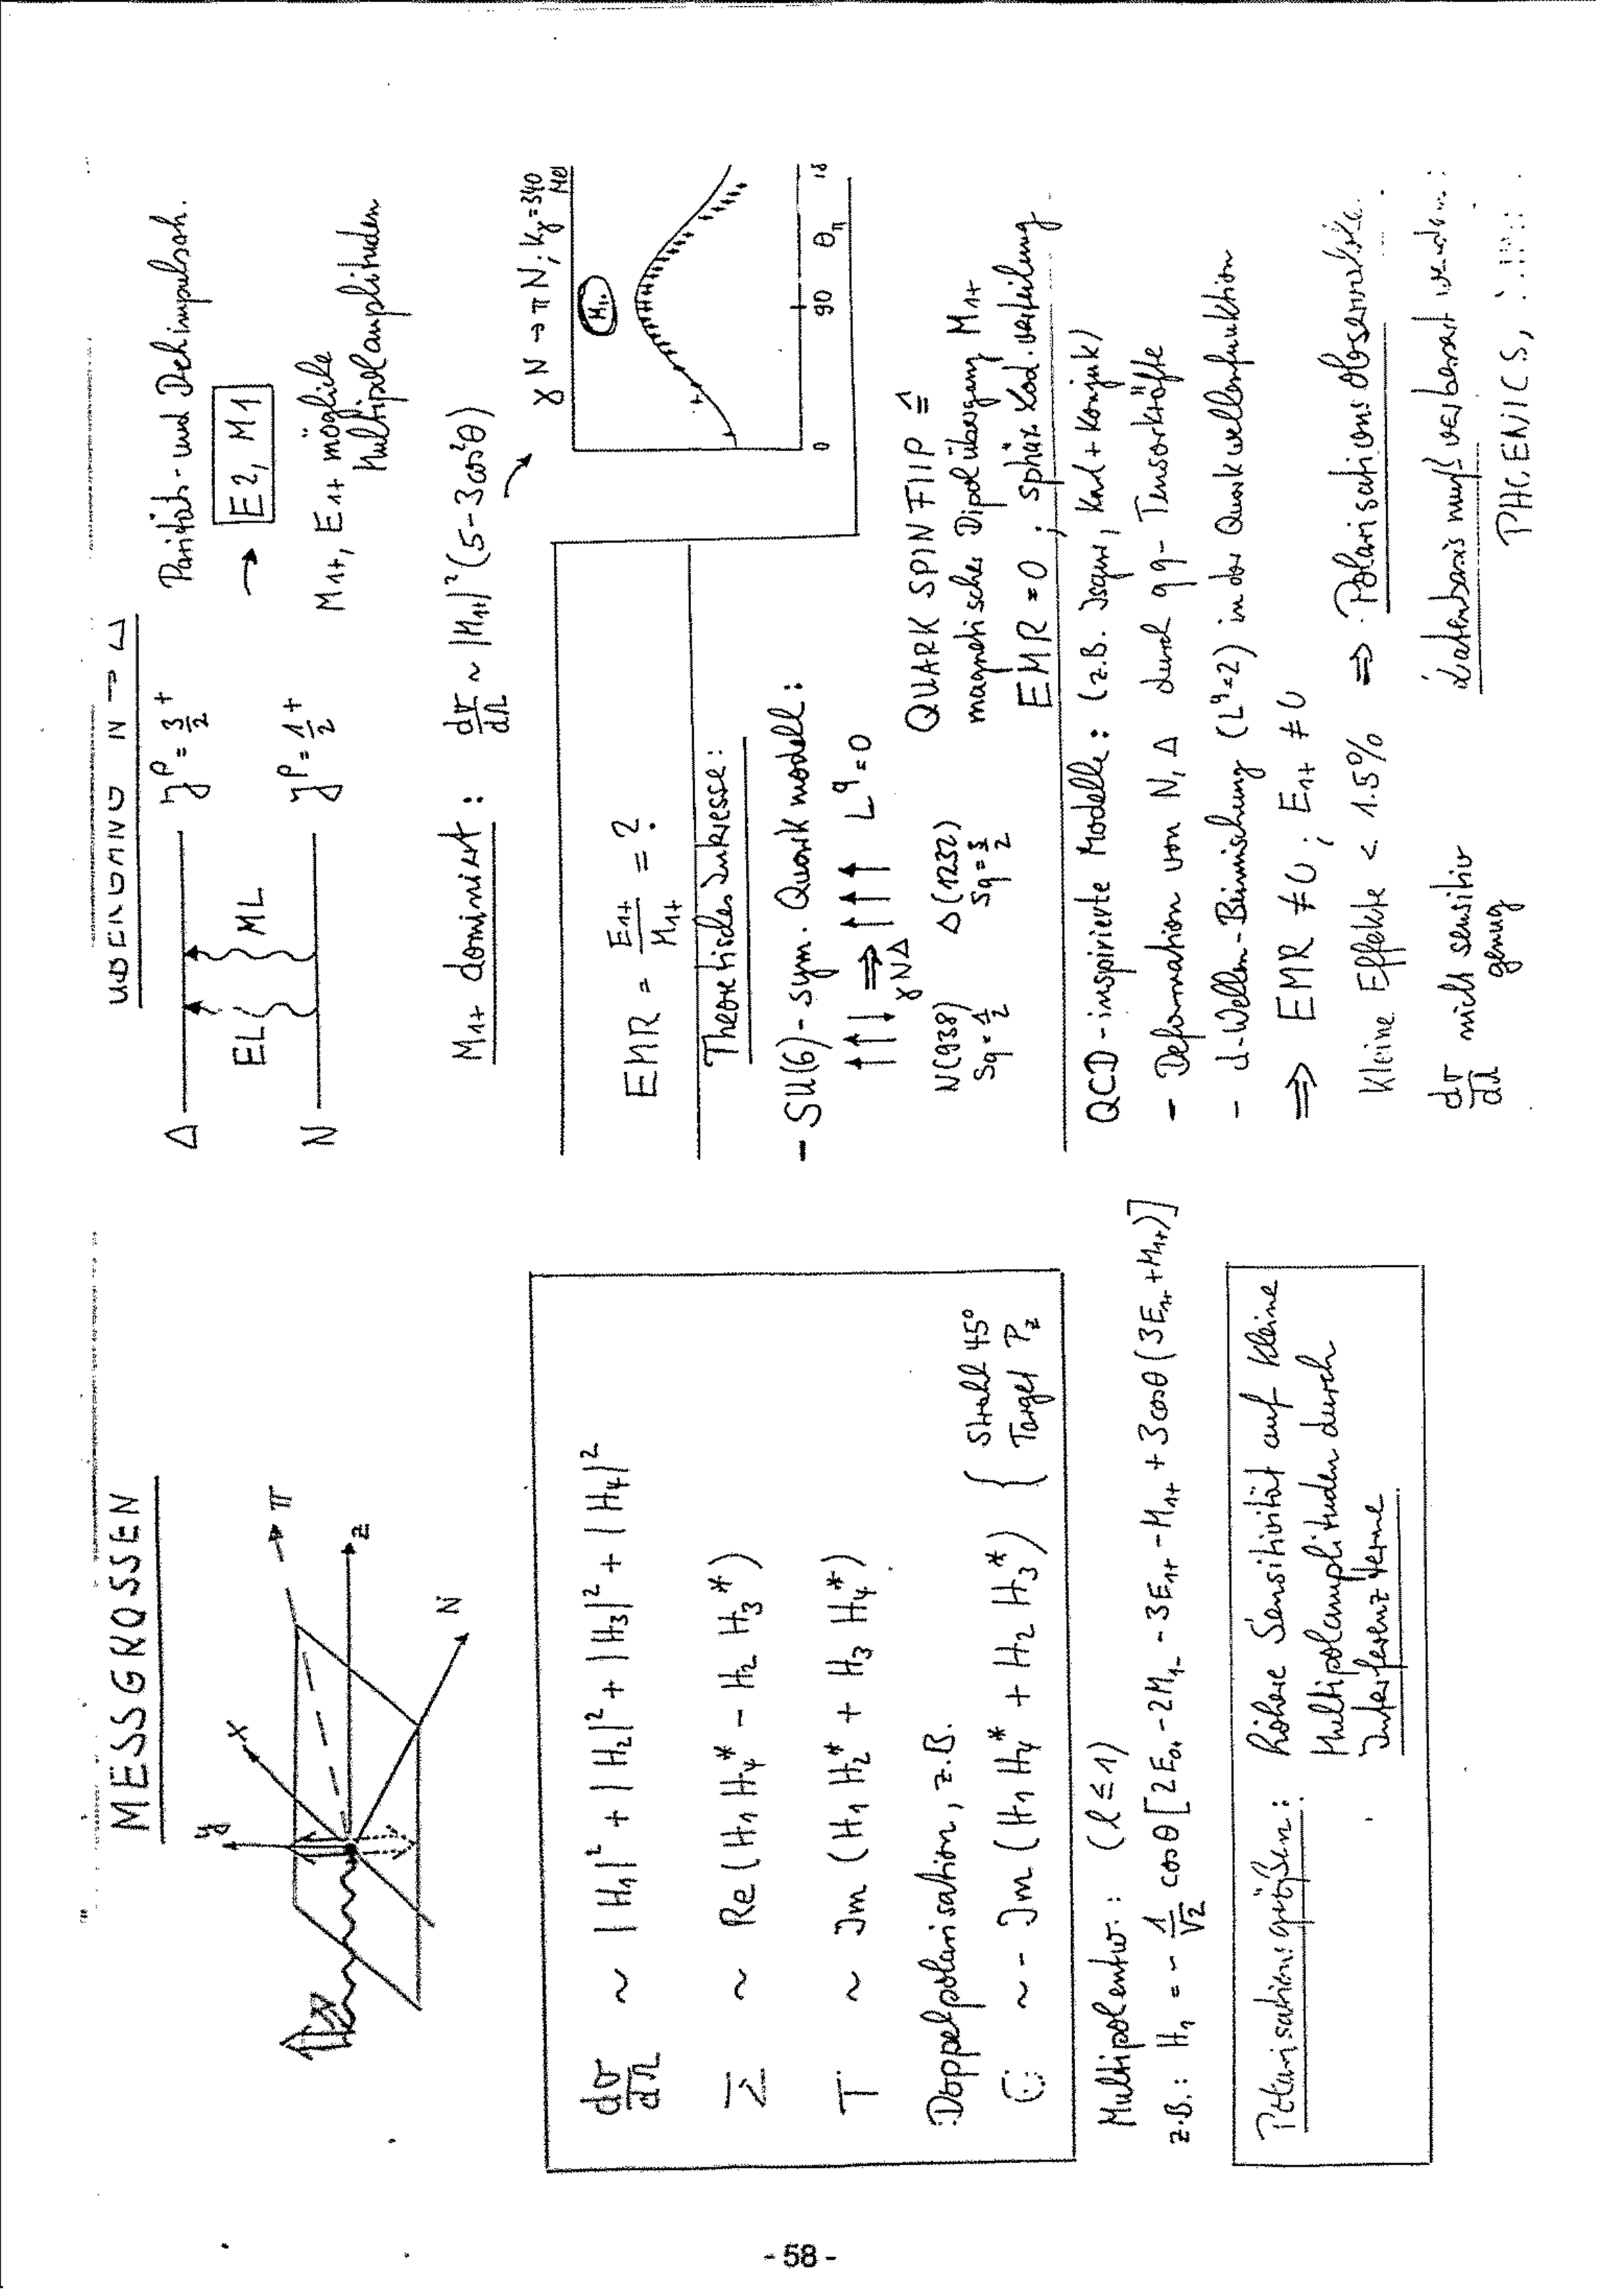 MESSGRÖSSEN
y
x
π
z
N
dσ/dΩ ~ |H₁|² + |H₂|² + |H₃|² + |H₄|²
Σ ~ Re (H₁ H₄* − H₂ H₃*)
T ~ Im (H₁ H₂* + H₃ H₄*)
Doppelpolarisation, z.B.
G: ~ - Im (H₁ H₄* + H₂ H₃*) { Strahl 45°
Target P_z
Multipolentw.: (l ≤ 1)
z.B.: H₁ = - 1/√2 cosθ [2E₀₊ - 2M₁₋ - 3E₁₊ - M₁₊ + 3cosθ (3E₁₊ + M₁₊)]
Polarisationsgrößen: hohe Sensitivität auf kleine
Multipolamplituden durch
Interferenzterme
ÜBERGANG N → Δ
Δ
EL
ML
N
J^P = 3/2 +
J^P = 1/2 +
Paritäts- und Drehimpulserh.
→ E2, M1
M₁₊, E₁₊ mögliche
Multipolamplituden
M₁₊ dominiert: dσ/dΩ ~ |M₁₊|² (5 - 3cos²θ)
γ N → π N; Kγ = 340
0
90
θ_π
18
EMR = E₁₊/M₁₊ = ?
Theoretisches Interesse:
- SU(6) - sym. Quarkmodell:
↑↑↓ ⇒ ↑↑↑ L^q = 0
γNΔ
N(938) Δ(1232)
Sq = 1/2 Sq = 3/2
QUARK SPIN FLIP ≙
magnetischer Dipolübergang M₁₊
EMR = 0; sphär. Lad. verteilung
QCD - inspirierte Modelle: (z.B. Isgur, Karl + Konjuk)
- Deformation von N, Δ durch qq - Tensorkräfte
- d-Wellen-Beimischung (L^q = 2) in der Quarkwellenfunktion
⇒ EMR ≠ 0; E₁₊ ≠ 0
Kleine Effekte < 1.5% ⇒ Polarisationsobservable
dσ/dΩ nicht sensitiv
genug
Datenbasis muß verbessert werden
PHOENICS,
- 58 -